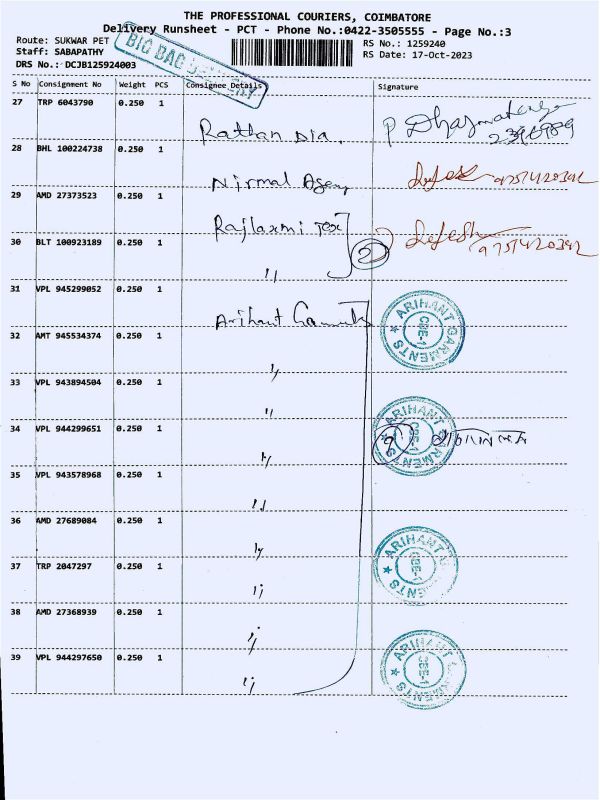 THE PROFESSIONAL COURIERS, COIMBATORE
Delivery Runsheet - PCT - Phone No.:0422-3505555 - Page No.:3
Route: SUKWAR PET
Staff: SABAPATHY
DRS No.: DCJB125924003
RS No.: 1259240
RS Date: 17-Oct-2023
BIG BAG DELIVERY
S No Consignment No Weight PCS Consignee Details Signature
27 TRP 6043790 0.250 1
Rattan Dia.
28 BHL 100224738 0.250 1
Nirmal Agency
9751420392
29 AMD 27373523 0.250 1
Rajlaxmi Tex
30 BLT 100923189 0.250 1
2
9751420392
〃
31 VPL 945299052 0.250 1
Arihant Garments
ARIHANT GARMENTS CBE-1
32 AMT 945534374 0.250 1
〃
33 VPL 943894504 0.250 1
〃
ARIHANT GARMENTS CBE-1
34 VPL 944299651 0.250 1
〃
9
35 VPL 943578968 0.250 1
〃
36 AMD 27689084 0.250 1
〃
ARIHANT GARMENTS CBE-1
37 TRP 2047297 0.250 1
〃
38 AMD 27368939 0.250 1
〃
ARIHANT GARMENTS CBE-1
39 VPL 944297650 0.250 1
〃